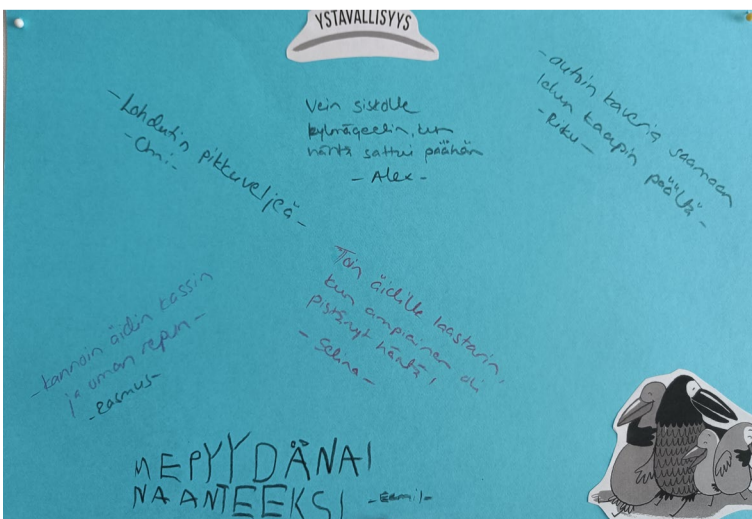 YSTÄVÄLLISYYS
-Lohdutin pikkuveljeä-
-Omi-
Vein siskolle
kylmägeelin, kun
häntä sattui päähän
-Alex-
-autoin kaveria saamaan
lelun kaapin päältä-
-Riku-
-kannoin äidin kassin
ja oman repun-
-Rasmus-
Toin äidille laastarin,
kun ampiainen oli
pistänyt häntä!
-Selina-
MEPYYDÄNAI
NAANTEEKSI -Eemil-